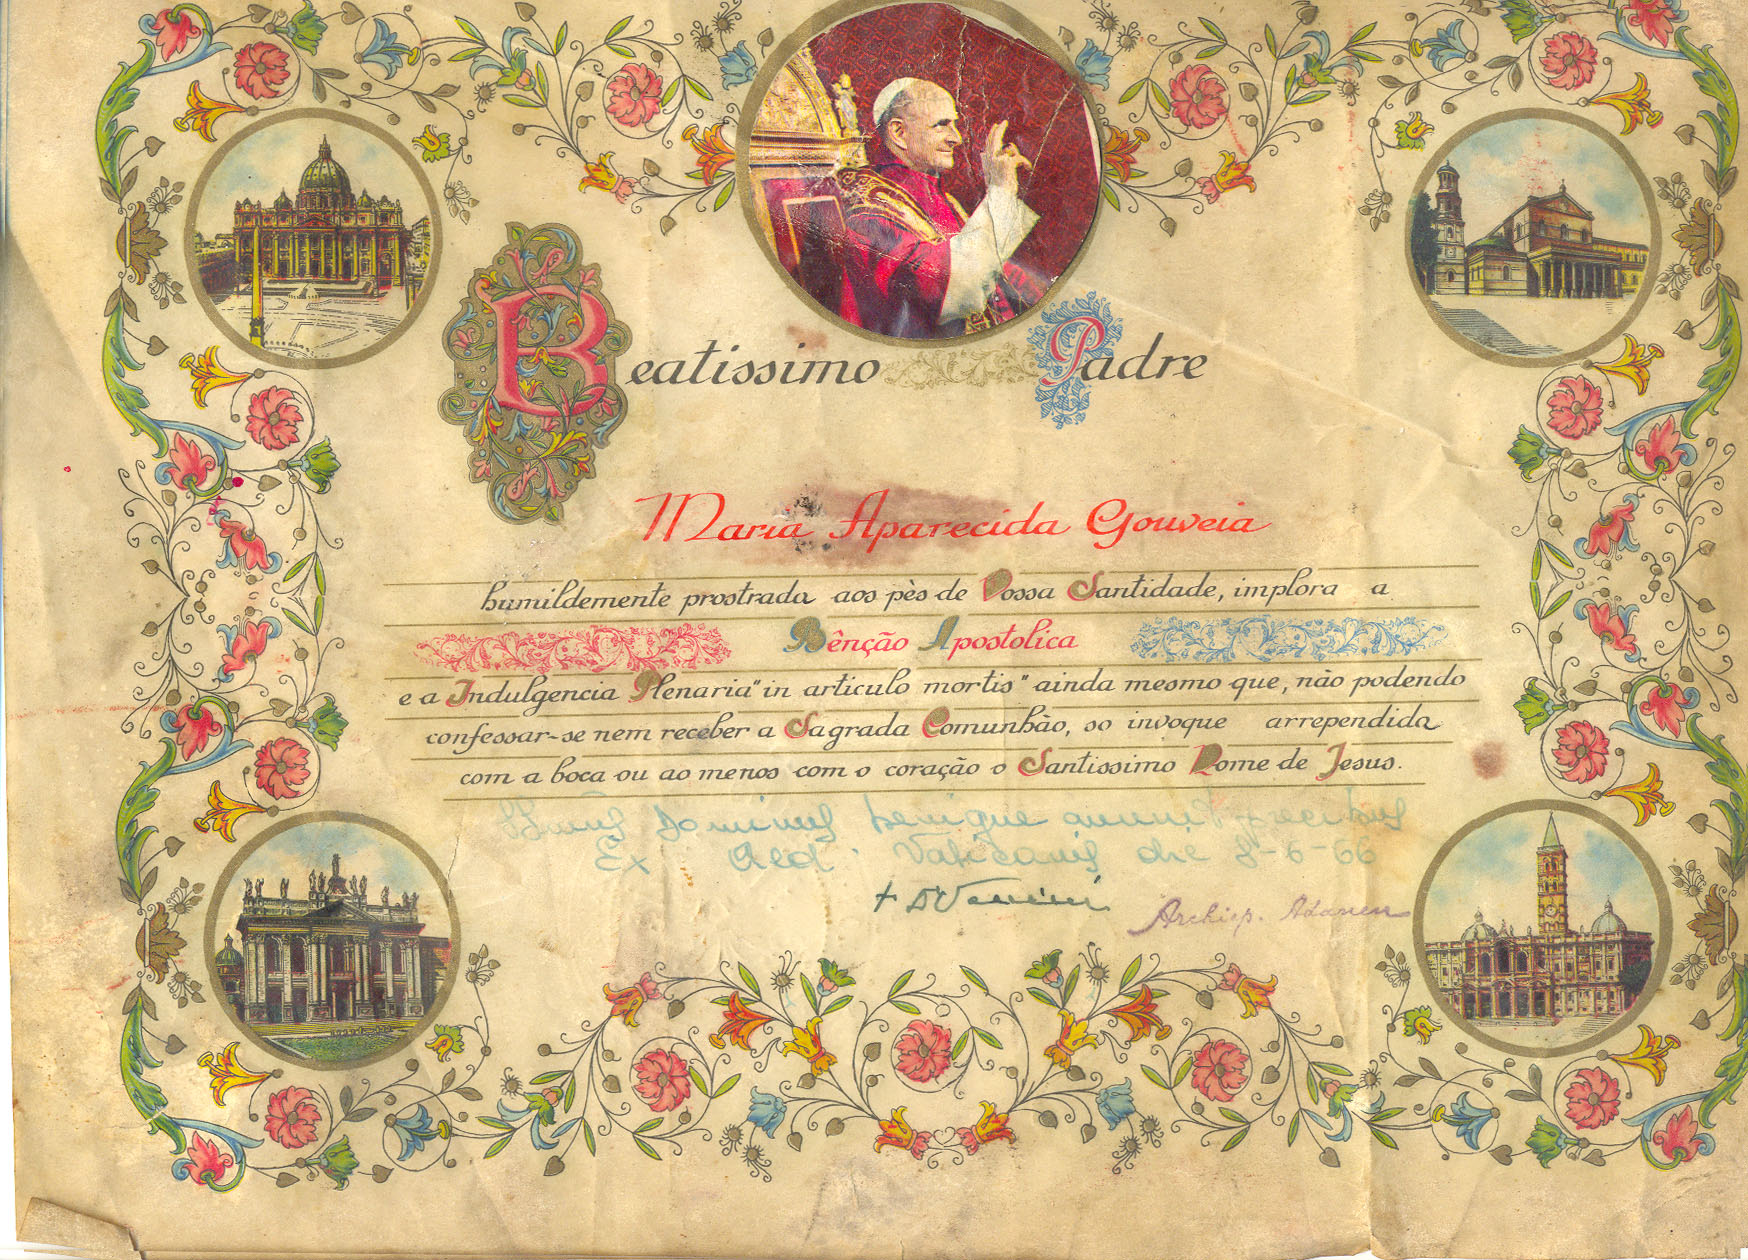 Beatissimo Padre
Maria Aparecida Gouveia
humildemente prostrada aos pès de Vossa Santidade, implora a
Bênção Apostolica
e a Indulgencia Plenaria "in articulo mortis" ainda mesmo que, não podendo
confessar-se nem receber a Sagrada Comunhão, so invoque arrependida
com a boca ou ao menos com o coração o Santissimo Nome de Jesus.
Dominus benigne annuit precibus
Ex Aed. Vaticanis die 8-6-66
Archiep.